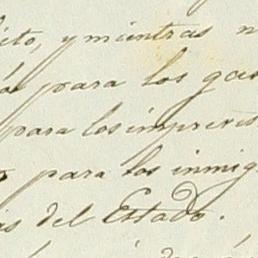 ito, y mientras n
para los gas
para los imprevis
para los inmig
is del Estado.